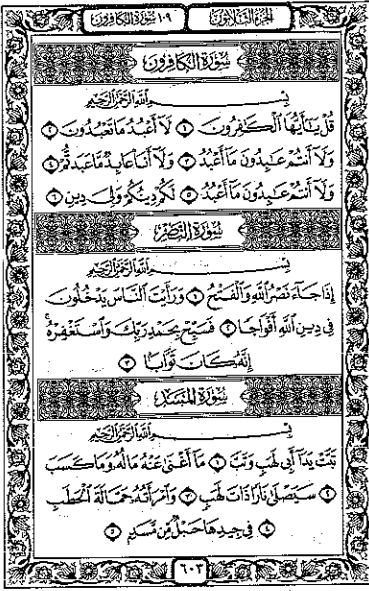 الجزء الثلاثون ١٠٩ سورة الكافرون
سُورَةُ الكَافِرُونَ
بِسْمِ اللَّهِ الرَّحْمَٰنِ الرَّحِيمِ
قُلْ يَٰٓأَيُّهَا ٱلْكَٰفِرُونَ ١ لَآ أَعْبُدُ مَا تَعْبُدُونَ ٢
وَلَآ أَنتُمْ عَٰبِدُونَ مَآ أَعْبُدُ ٣ وَلَآ أَنَا۠ عَابِدٌ مَّا عَبَدتُّمْ ٤
وَلَآ أَنتُمْ عَٰبِدُونَ مَآ أَعْبُدُ ٥ لَكُمْ دِينُكُمْ وَلِىَ دِينِ ٦
سُورَةُ النَّصْرِ
بِسْمِ اللَّهِ الرَّحْمَٰنِ الرَّحِيمِ
إِذَا جَآءَ نَصْرُ ٱللَّهِ وَٱلْفَتْحُ ١ وَرَأَيْتَ ٱلنَّاسَ يَدْخُلُونَ
فِى دِينِ ٱللَّهِ أَفْوَاجًا ٢ فَسَبِّحْ بِحَمْدِ رَبِّكَ وَٱسْتَغْفِرْهُ ۚ
إِنَّهُۥ كَانَ تَوَّابًۢا ٣
سُورَةُ المَسَدِ
بِسْمِ اللَّهِ الرَّحْمَٰنِ الرَّحِيمِ
تَبَّتْ يَدَآ أَبِى لَهَبٍ وَتَبَّ ١ مَآ أَغْنَىٰ عَنْهُ مَالُهُۥ وَمَا كَسَبَ
٢ سَيَصْلَىٰ نَارًا ذَاتَ لَهَبٍ ٣ وَٱمْرَأَتُهُۥ حَمَّالَةَ ٱلْحَطَبِ
٤ فِى جِيدِهَا حَبْلٌ مِّن مَّسَدٍۭ ٥
٦٠٣